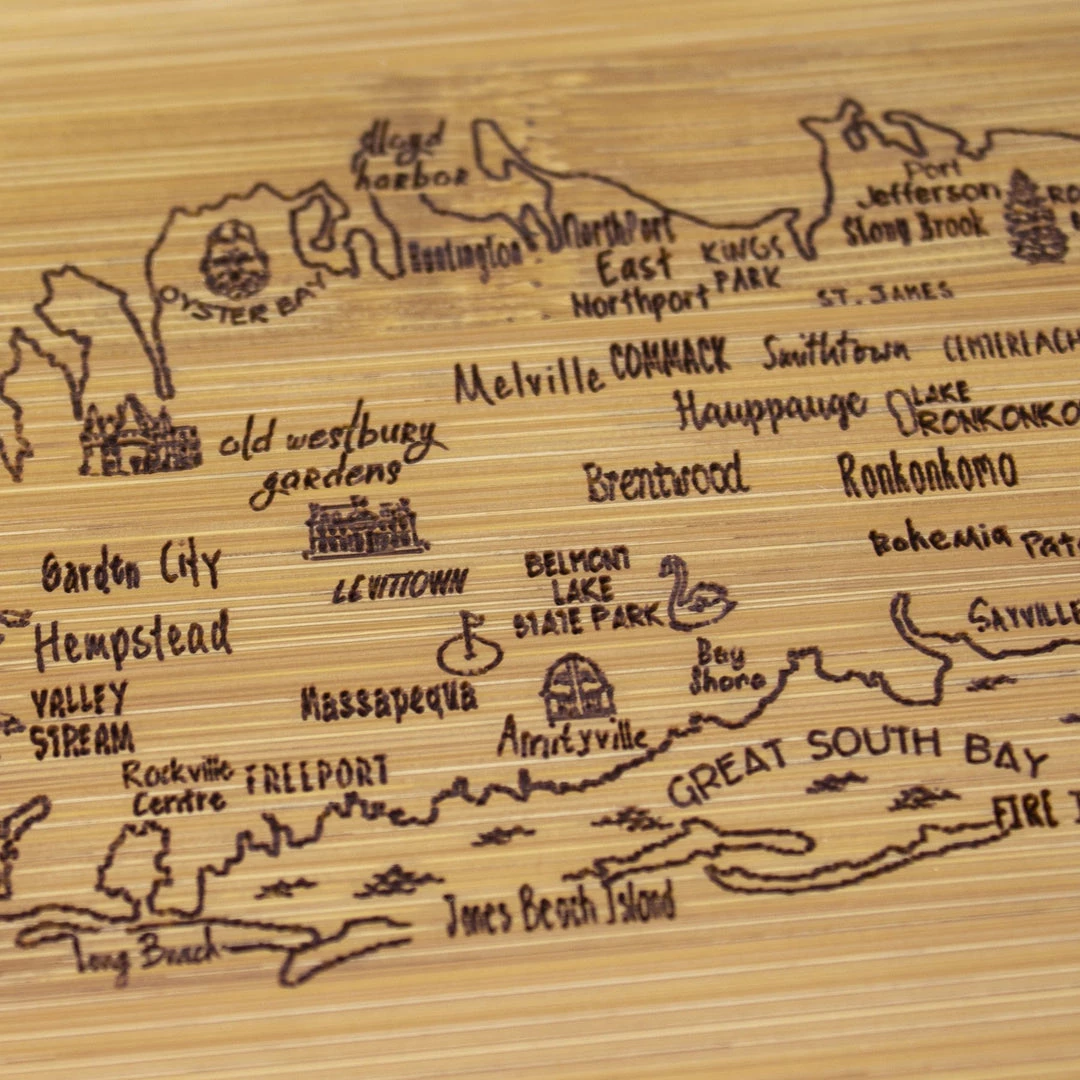 lloyd
harbor
Port
Jefferson
Stony Brook
RO
Huntington
NorthPort
KINGS
PARK
East
Northport
OYSTER BAY
ST. JAMES
Melville
COMMACK
Smithtown
CENTEREACH
Hauppauge
LAKE
RONKONKO
old westbury
gardens
Brentwood
Ronkonkomo
Garden City
LEVITTOWN
BELMONT
LAKE
STATE PARK
Bohemia
Patc
Hempstead
SAYVILLE
Bay
Shore
VALLEY
STREAM
Massapequa
Amityville
Rockville
Centre
FREEPORT
GREAT SOUTH BAY
FIRE I
Jones Beach Island
Long Beach